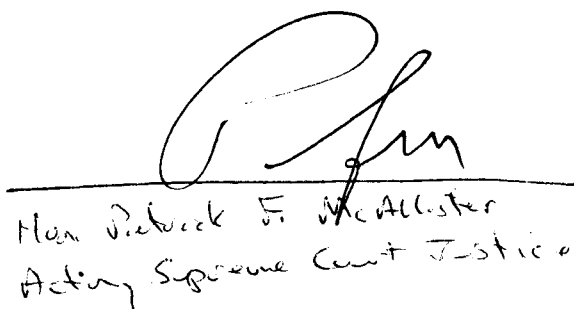 Hon. Patrick F. McAllister
Acting Supreme Court Justice